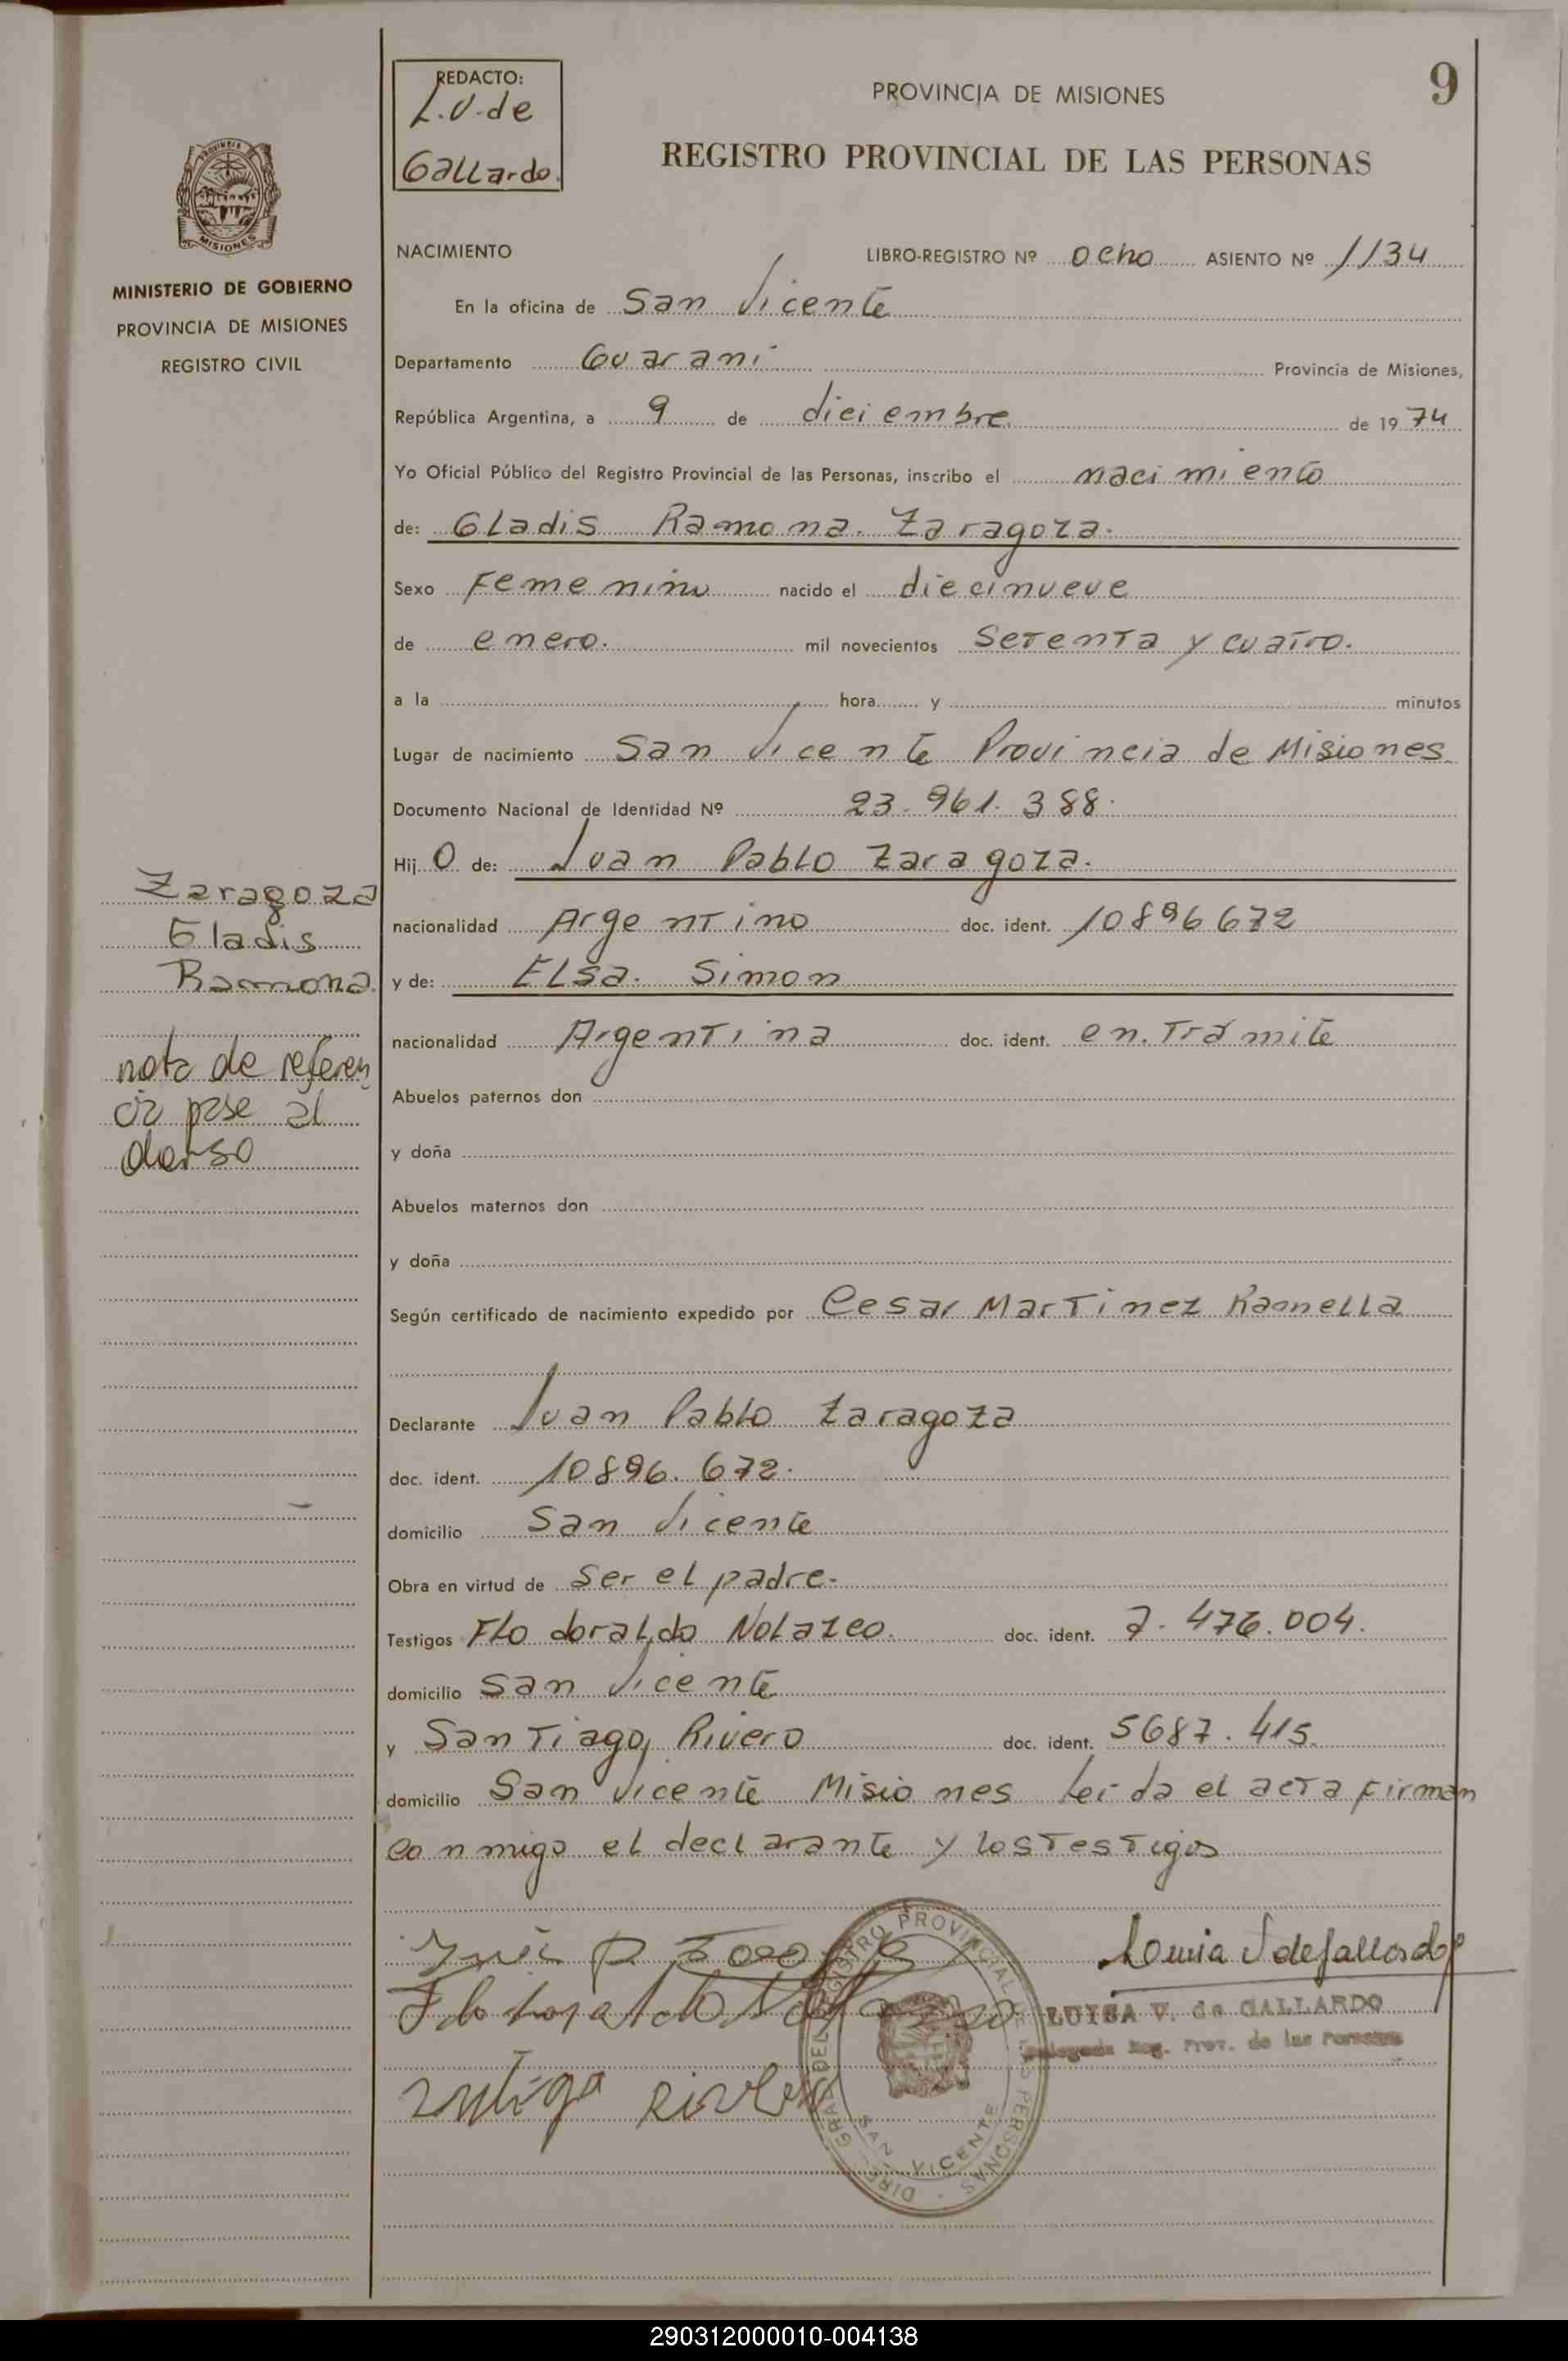 REDACTO:
L.V. de
Gallardo.
PROVINCIA DE MISIONES
9
REGISTRO PROVINCIAL DE LAS PERSONAS
PROVINCIA DE
MISIONES
MINISTERIO DE GOBIERNO
PROVINCIA DE MISIONES
REGISTRO CIVIL
NACIMIENTO LIBRO-REGISTRO Nº ocho ASIENTO Nº 1134
En la oficina de San Vicente
Departamento Guarani Provincia de Misiones,
República Argentina, a 9 de diciembre de 1974
Yo Oficial Público del Registro Provincial de las Personas, inscribo el nacimiento
de: Gladis Ramona. Zaragoza.
Sexo Femenino nacido el diecinueve
de enero. mil novecientos Setenta y cuatro.
a la hora y minutos
Lugar de nacimiento San Vicente Provincia de Misiones.
Documento Nacional de Identidad Nº 23.961.388.
Hij O de: Juan Pablo Zaragoza.
nacionalidad Argentino doc. ident. 10896672
y de: Elsa. Simon
nacionalidad Argentina doc. ident. en. Trámite
Abuelos paternos don
y doña
Abuelos maternos don
y doña
Según certificado de nacimiento expedido por Cesar Martinez Ramella
Declarante Juan Pablo Zaragoza
doc. ident. 10896.672.
domicilio San Vicente
Obra en virtud de Ser el padre.
Testigos Flodoraldo Nolazco. doc. ident. 7.476.004.
domicilio San Vicente
y Santiago, Rivero doc. ident. 5687.415.
domicilio San Vicente Misiones leída el acta firman
conmigo el declarante y los Testigos
Zaragoza
Gladis
Ramona.
nota de referen
cia pase al
dorso
LUISA V. de GALLARDO
Delegada Reg. Prov. de las Personas
DIRE. GRAL. DEL REGISTRO PROVINCIAL DE LAS PERSONAS
SAN VICENTE
290312000010-004138